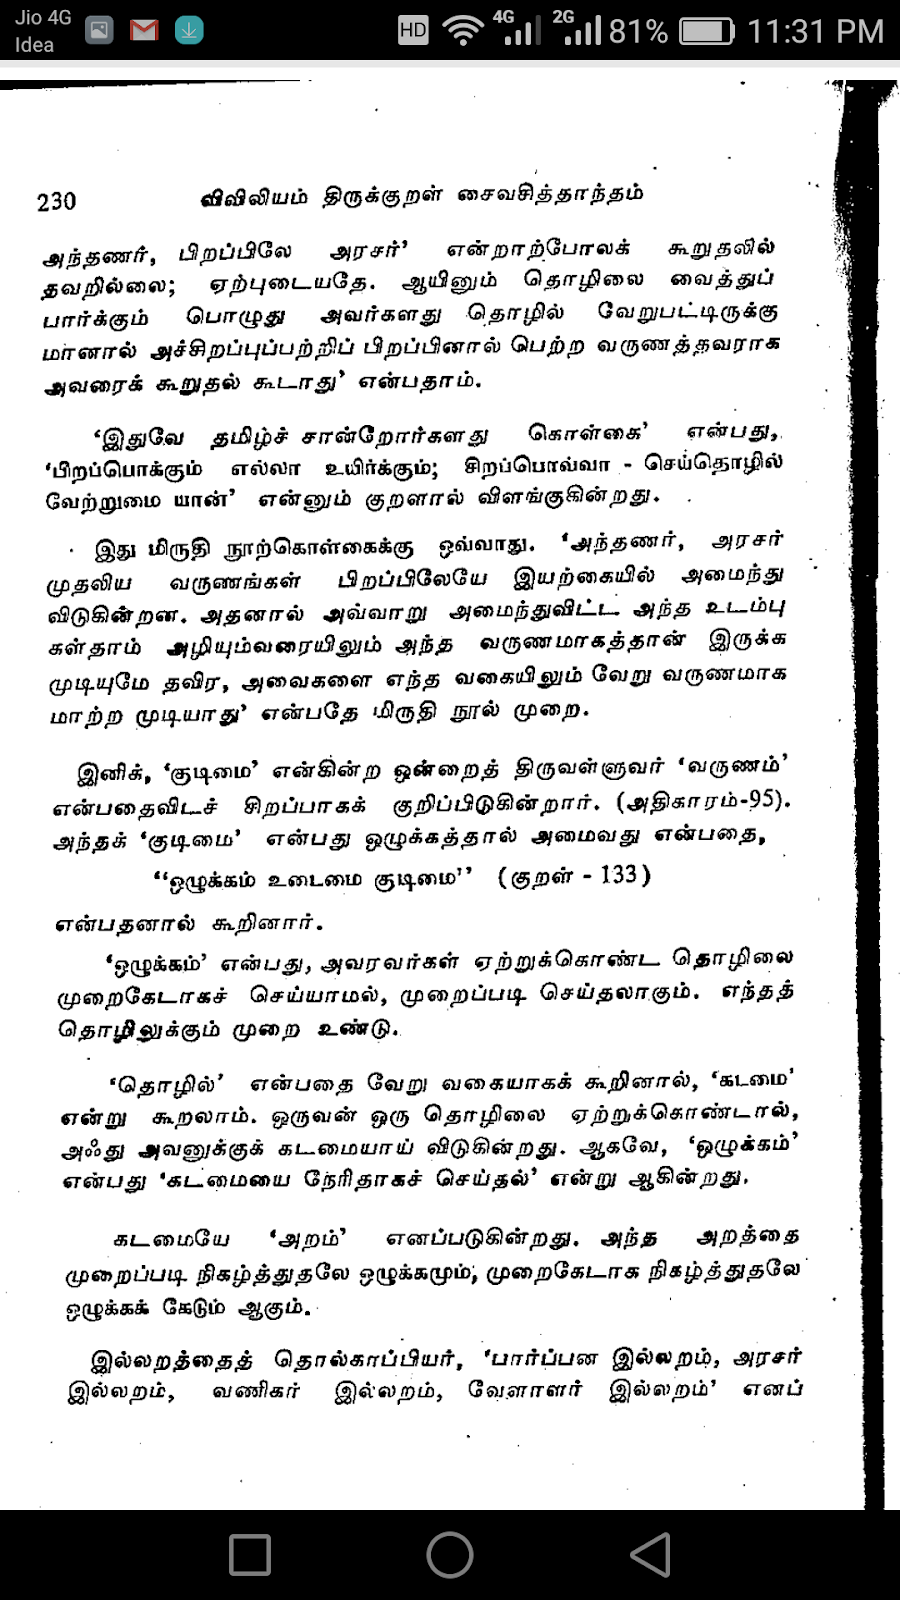 Jio 4G
Idea
HD 4G 2G 81% 11:31 PM
230 விவிலியம் திருக்குறள் சைவசித்தாந்தம்
அந்தணர், பிறப்பிலே அரசர்’ என்றாற்போலக் கூறுதலில்
தவறில்லை; ஏற்புடையதே. ஆயினும் தொழிலை வைத்துப்
பார்க்கும் பொழுது அவர்களது தொழில் வேறுபட்டிருக்கு
மானால் அச்சிறப்புப்பற்றிப் பிறப்பினால் பெற்ற வருணத்தவராக
அவரைக் கூறுதல் கூடாது’ என்பதாம்.
‘இதுவே தமிழ்ச் சான்றோர்களது கொள்கை’ என்பது,
‘பிறப்பொக்கும் எல்லா உயிர்க்கும்; சிறப்பொவ்வா - செய்தொழில்
வேற்றுமை யான்’ என்னும் குறளால் விளங்குகின்றது.
இது மிருதி நூற்கொள்கைக்கு ஒவ்வாது. ‘அந்தணர், அரசர்
முதலிய வருணங்கள் பிறப்பிலேயே இயற்கையில் அமைந்து
விடுகின்றன. அதனால் அவ்வாறு அமைந்துவிட்ட அந்த உடம்பு
கள்தாம் அழியும்வரையிலும் அந்த வருணமாகத்தான் இருக்க
முடியுமே தவிர, அவைகளை எந்த வகையிலும் வேறு வருணமாக
மாற்ற முடியாது’ என்பதே மிருதி நூல் முறை.
இனிக், ‘குடிமை’ என்கின்ற ஒன்றைத் திருவள்ளுவர் ‘வருணம்’
என்பதைவிடச் சிறப்பாகக் குறிப்பிடுகின்றார். (அதிகாரம்-95).
அந்தக் ‘குடிமை’ என்பது ஒழுக்கத்தால் அமைவது என்பதை,
‘‘ஒழுக்கம் உடைமை குடிமை’’ (குறள் - 133)
என்பதனால் கூறினார்.
‘ஒழுக்கம்’ என்பது, அவரவர்கள் ஏற்றுக்கொண்ட தொழிலை
முறைகேடாகச் செய்யாமல், முறைப்படி செய்தலாகும். எந்தத்
தொழிலுக்கும் முறை உண்டு.
‘தொழில்’ என்பதை வேறு வகையாகக் கூறினால், ‘கடமை’
என்று கூறலாம். ஒருவன் ஒரு தொழிலை ஏற்றுக்கொண்டால்,
அஃது அவனுக்குக் கடமையாய் விடுகின்றது. ஆகவே, ‘ஒழுக்கம்’
என்பது ‘கடமையை நேரிதாகச் செய்தல்’ என்று ஆகின்றது.
கடமையே ‘அறம்’ எனப்படுகின்றது. அந்த அறத்தை
முறைப்படி நிகழ்த்துதலே ஒழுக்கமும், முறைகேடாக நிகழ்த்துதலே
ஒழுக்கக் கேடும் ஆகும்.
இல்லறத்தைத் தொல்காப்பியர், ‘பார்ப்பன இல்லறம், அரசர்
இல்லறம், வணிகர் இல்லறம், வேளாளர் இல்லறம்’ எனப்